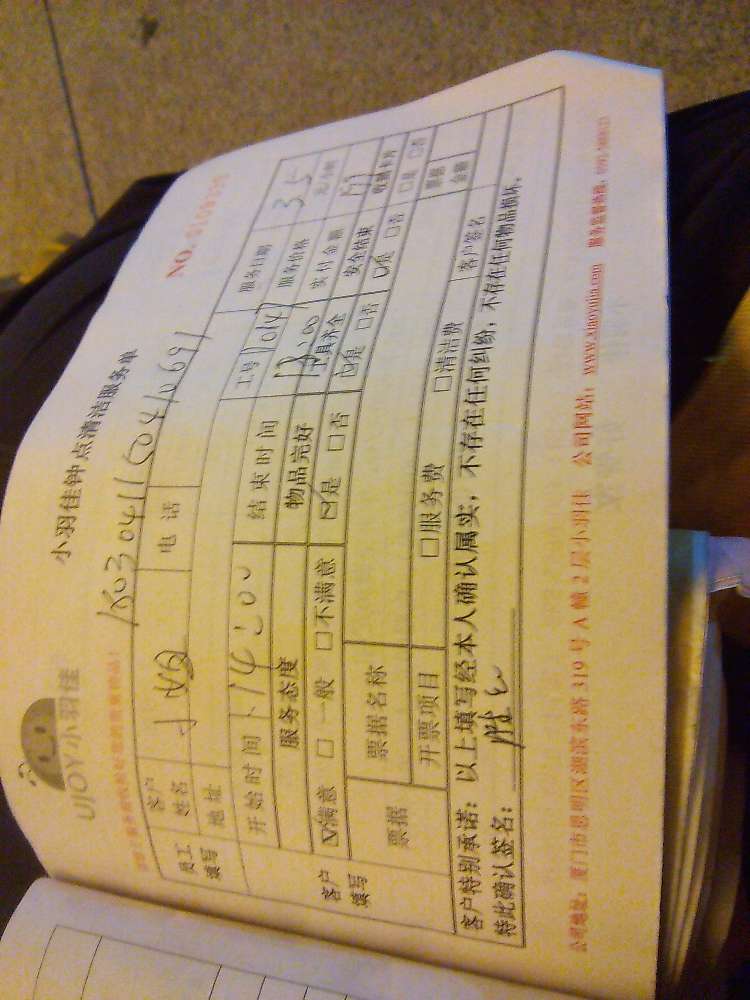 UJOY小羽佳
小羽佳钟点清洁服务单
NO.
18030411504110691
员工填写 客户姓名 电话 工号 1014 服务日期
地址
开始时间 14:00 结束时间 18:00 服务价格 35 元/小时
客户填写 服务态度 物品完好 工具齐全 实付金额
☑满意 □一般 □不满意 ☑是 □否 ☑是 □否 安全结束 ☑是 □否 收到卡片 □是 □否
票据 票据名称 票据金额
开票项目 □服务费 □清洁费
客户特别承诺：以上填写经本人确认属实，不存在任何纠纷，不存在任何物品损坏。
特此确认签名： 客户签名
公司地址：厦门市思明区湖滨东路 319 号 A 幢 2 层小羽佳 公司网站：www.xiaoyujia.com 服务监督热线：